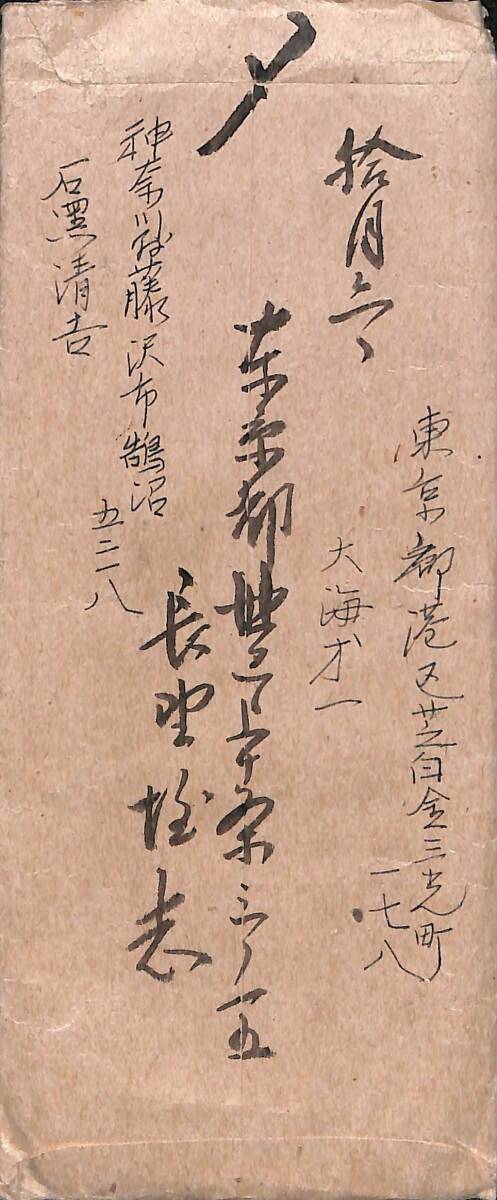 東京都港区芝白金三光町
一七八
大海才一
拾月六日
東京都世田谷区上北沢三ノ一五
長野 志
〆
神奈川県藤沢市鵠沼
五三二八
石黒清吉